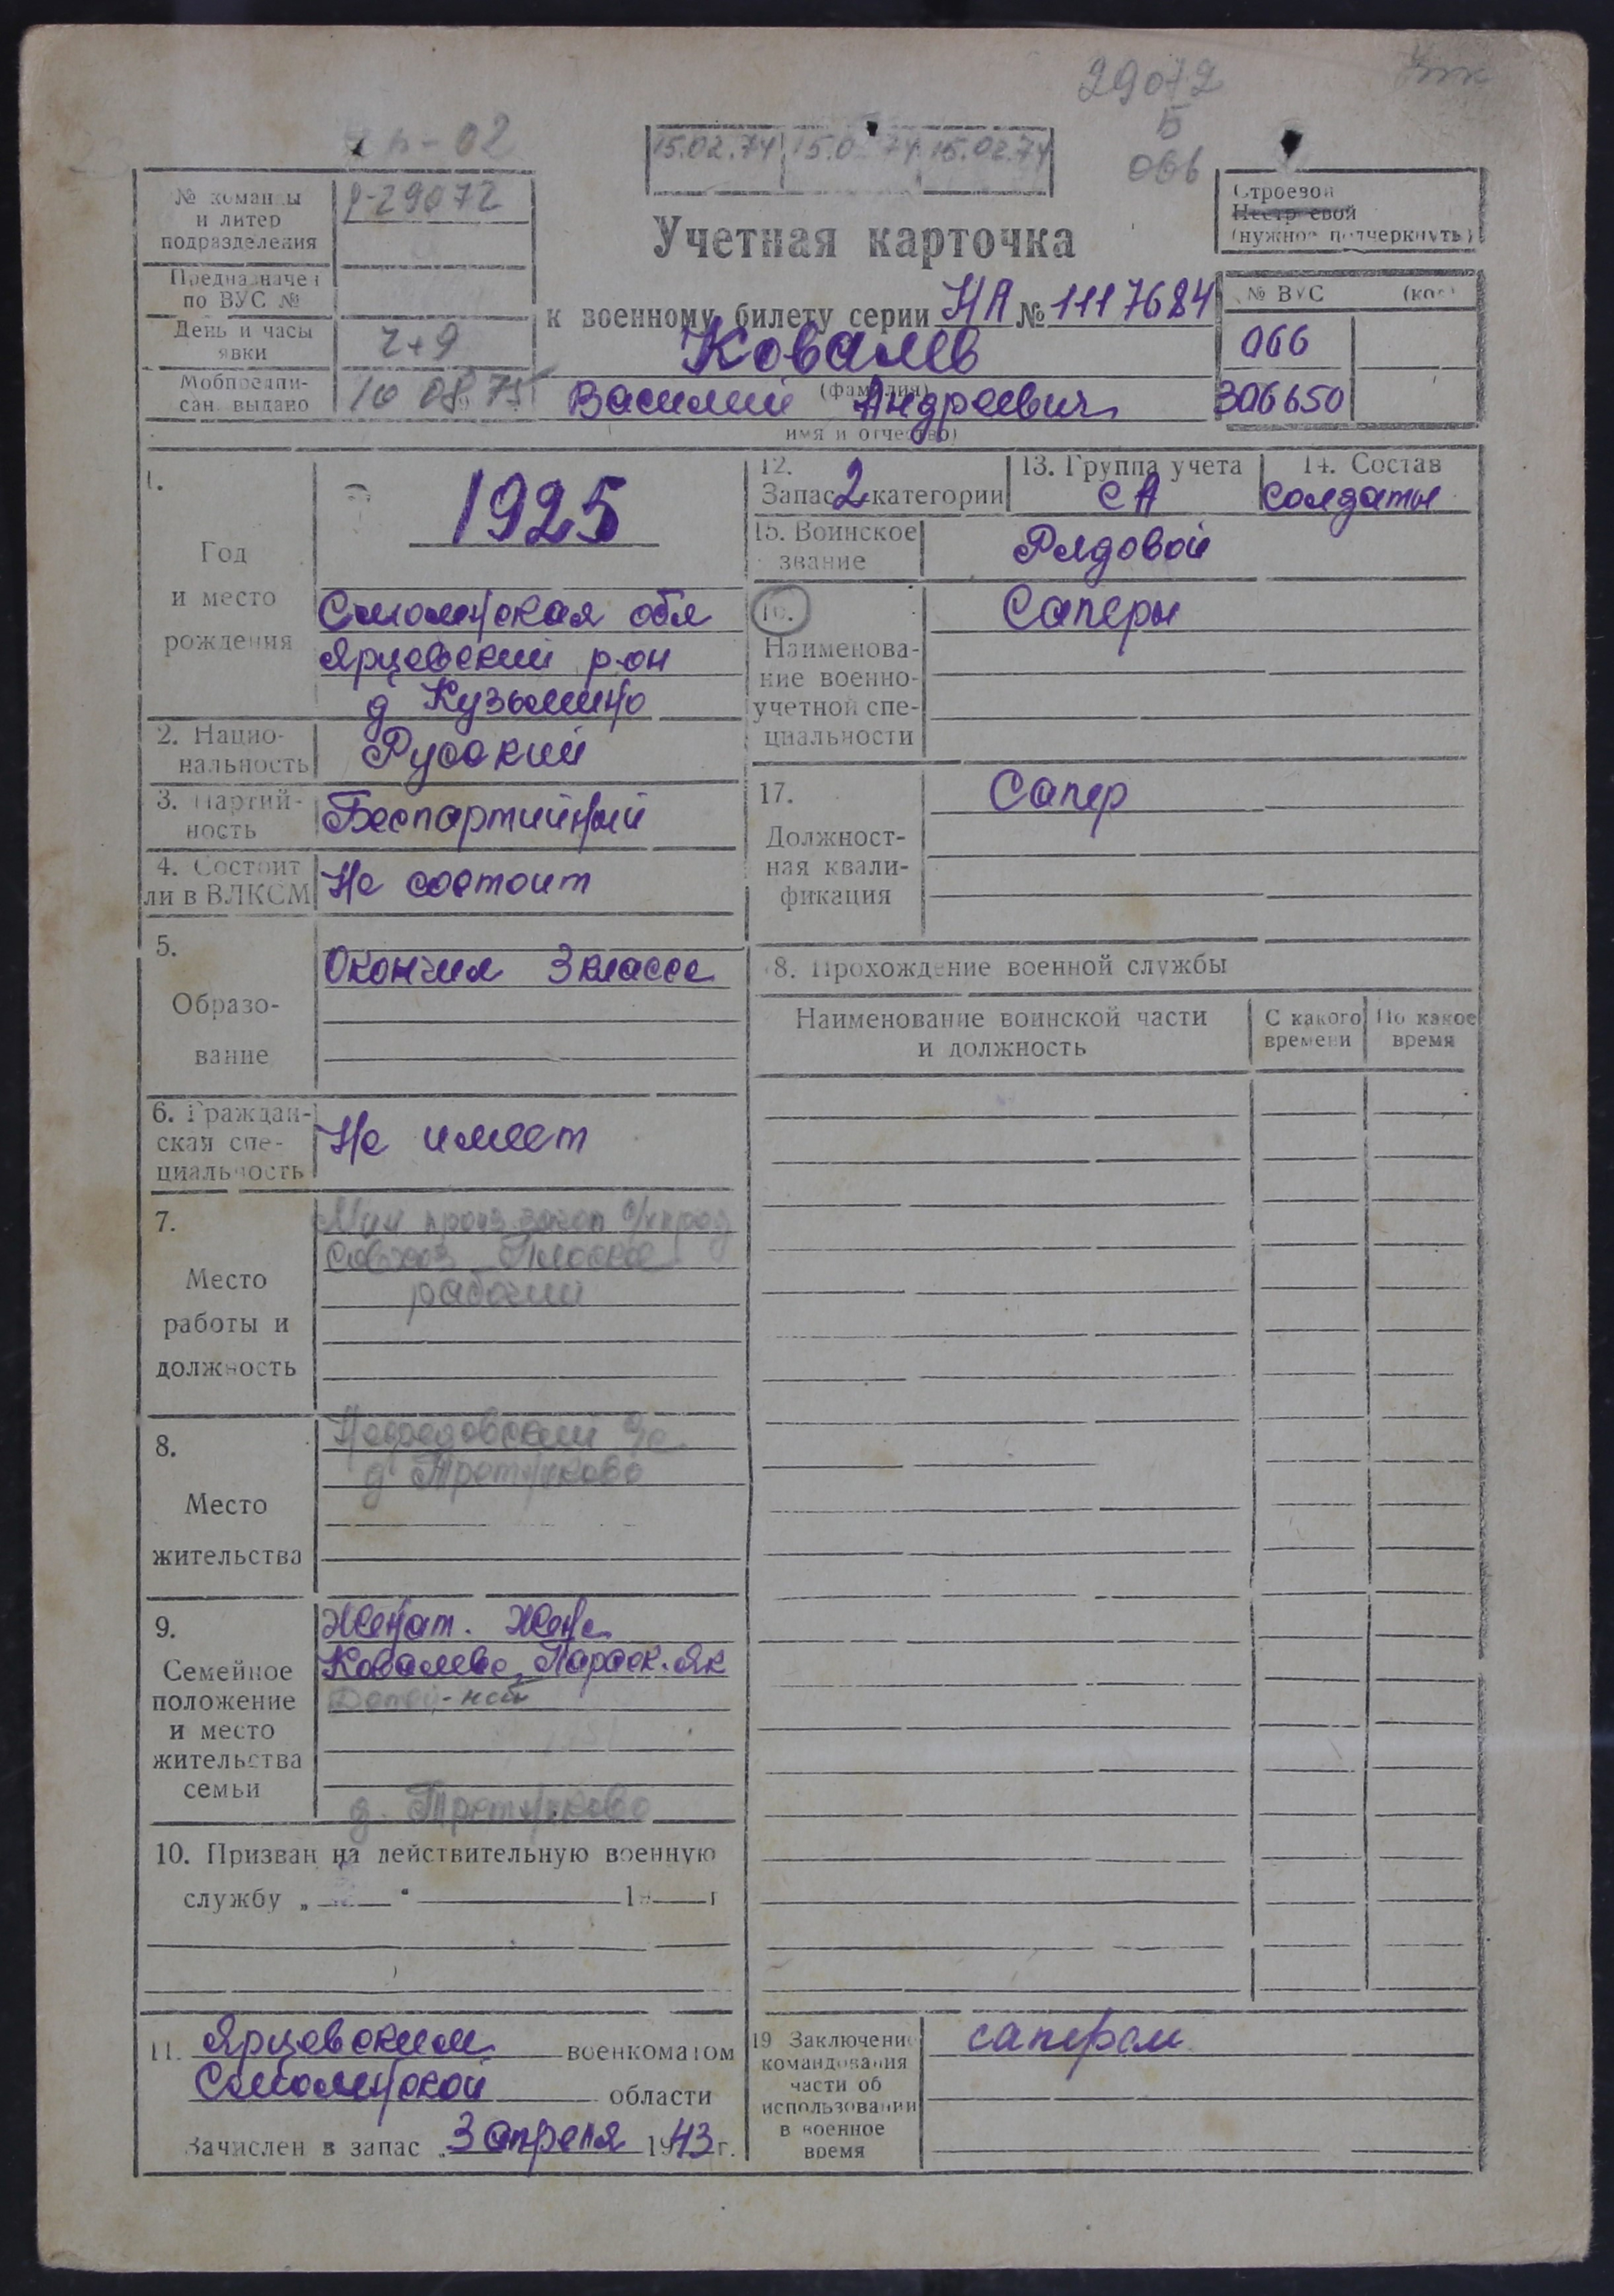 29072
Б
066
15.02.74 15.02.74 15.02.74
№ команды и литер подразделения
Р-29072
Предназначен по ВУС №
День и часы явки
2+9
Мобпредписан. выдано
10 08 75
Строевой
Нестроевой
(нужное подчеркнуть)
Учетная карточка
к военному билету серии НА № 1117684
Ковалев
(фамилия)
Василий Андреевич
(имя и отчество)
№ ВУС (код)
066
306650
1.
Год
и место
рождения
1925
Смоленская обл
Ярцевский р-он
д Кузьмино
2. Национальность
Русский
3. Партийность
Беспартийный
4. Состоит ли в ВЛКСМ
Не состоит
5.
Образование
Окончил 3 класса
6. Гражданская специальность
Не имеет
7.
Место
работы и
должность
Мин произ. загот с/х прод
Совхоз
рабочий
8.
Место
жительства
с/с
д
9.
Семейное
положение
и место
жительства
семьи
Женат. Жена
Ковалева Параск. Як
Детей - нет
д.
10. Призван на действительную военную
службу „ “ 19 г
11. Ярцевским военкоматом
Смоленской области
Зачислен в запас „3 апреля 1943 г.
12.
Запас 2 категории
13. Группа учета
СА
14. Состав
солдаты
15. Воинское звание
Рядовой
16.
Наименование военно-учетной специальности
Саперы
17.
Должностная квалификация
Сапер
18. Прохождение военной службы
Наименование воинской части
и должность
С какого времени
По какое время
19 Заключение
командования
части об
использовании
в военное
время
сапером